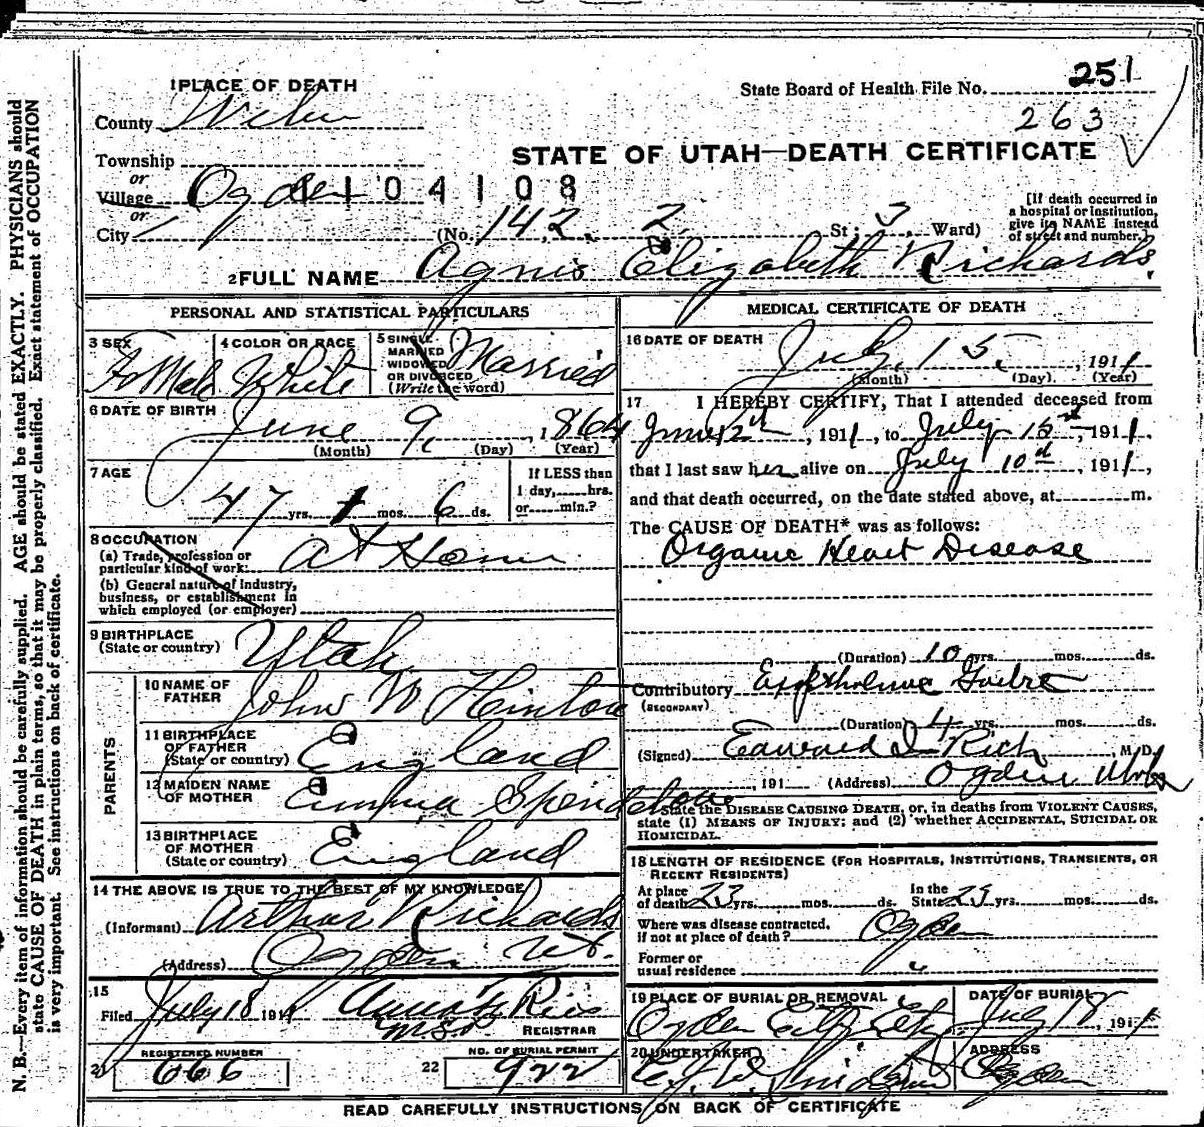 N. B.—Every item of information should be carefully supplied. AGE should be stated EXACTLY. PHYSICIANS should
state CAUSE OF DEATH in plain terms, so that it may be properly classified. Exact statement of OCCUPATION
is very important. See instructions on back of certificate.
1 PLACE OF DEATH
State Board of Health File No. 251
County Weber
263
STATE OF UTAH—DEATH CERTIFICATE
Township
or
Village Ogden
104108
or
City
(No. 142. 2 St; 3 Ward)
[If death occurred in
a hospital or institution,
give its NAME instead
of street and number.]
2 FULL NAME Agnis Elizabeth Richards
PERSONAL AND STATISTICAL PARTICULARS
3 SEX
FeMale
4 COLOR OR RACE
White
5 SINGLE
MARRIED
WIDOWED
OR DIVORCED
(Write the word)
Married
6 DATE OF BIRTH
June 9, 1864
(Month) (Day) (Year)
7 AGE
47 yrs. 1 mos. 6 ds.
If LESS than
1 day,......hrs.
or......min.?
8 OCCUPATION
(a) Trade, profession or
particular kind of work: At Home
(b) General nature of industry,
business, or establishment in
which employed (or employer)
9 BIRTHPLACE
(State or country)
Utah
PARENTS
10 NAME OF
FATHER
John W Hinton
11 BIRTHPLACE
OF FATHER
(State or country)
England
12 MAIDEN NAME
OF MOTHER
Emma Spendelow
13 BIRTHPLACE
OF MOTHER
(State or country)
England
14 THE ABOVE IS TRUE TO THE BEST OF MY KNOWLEDGE
(Informant) Arthur Richards
(Address) Ogden Ut.
15
Filed July 18 191
REGISTRAR
REGISTERED NUMBER
666
22
NO. OF BURIAL PERMIT
922
MEDICAL CERTIFICATE OF DEATH
16 DATE OF DEATH
July, 15, 1911
(Month) (Day). (Year)
17 I HEREBY CERTIFY, That I attended deceased from
June 12th, 1911, to July 15st, 1911.
that I last saw her alive on July 10d, 1911,
and that death occurred, on the date stated above, at m.
The CAUSE OF DEATH* was as follows:
Organic Heart Disease
(Duration) 10 yrs. mos. ds.
Contributory
(SECONDARY)
(Duration) 4 yrs. mos. ds.
(Signed) Edward I Rich, M. D.
, 191 (Address) Ogden Utah
State the DISEASE CAUSING DEATH, or, in deaths from VIOLENT CAUSES,
state (1) MEANS OF INJURY; and (2) whether ACCIDENTAL, SUICIDAL OR
HOMICIDAL.
18 LENGTH OF RESIDENCE (FOR HOSPITALS, INSTITUTIONS, TRANSIENTS, OR
RECENT RESIDENTS)
At place
of death 23 yrs. mos. ds.
In the
State yrs. mos. ds.
Where was disease contracted,
if not at place of death? Ogden
Former or
usual residence "
19 PLACE OF BURIAL OR REMOVAL
Ogden City
DATE OF BURIAL
July 18, 1911
20 UNDERTAKER
ADDRESS
Ogden
READ CAREFULLY INSTRUCTIONS ON BACK OF CERTIFICATE